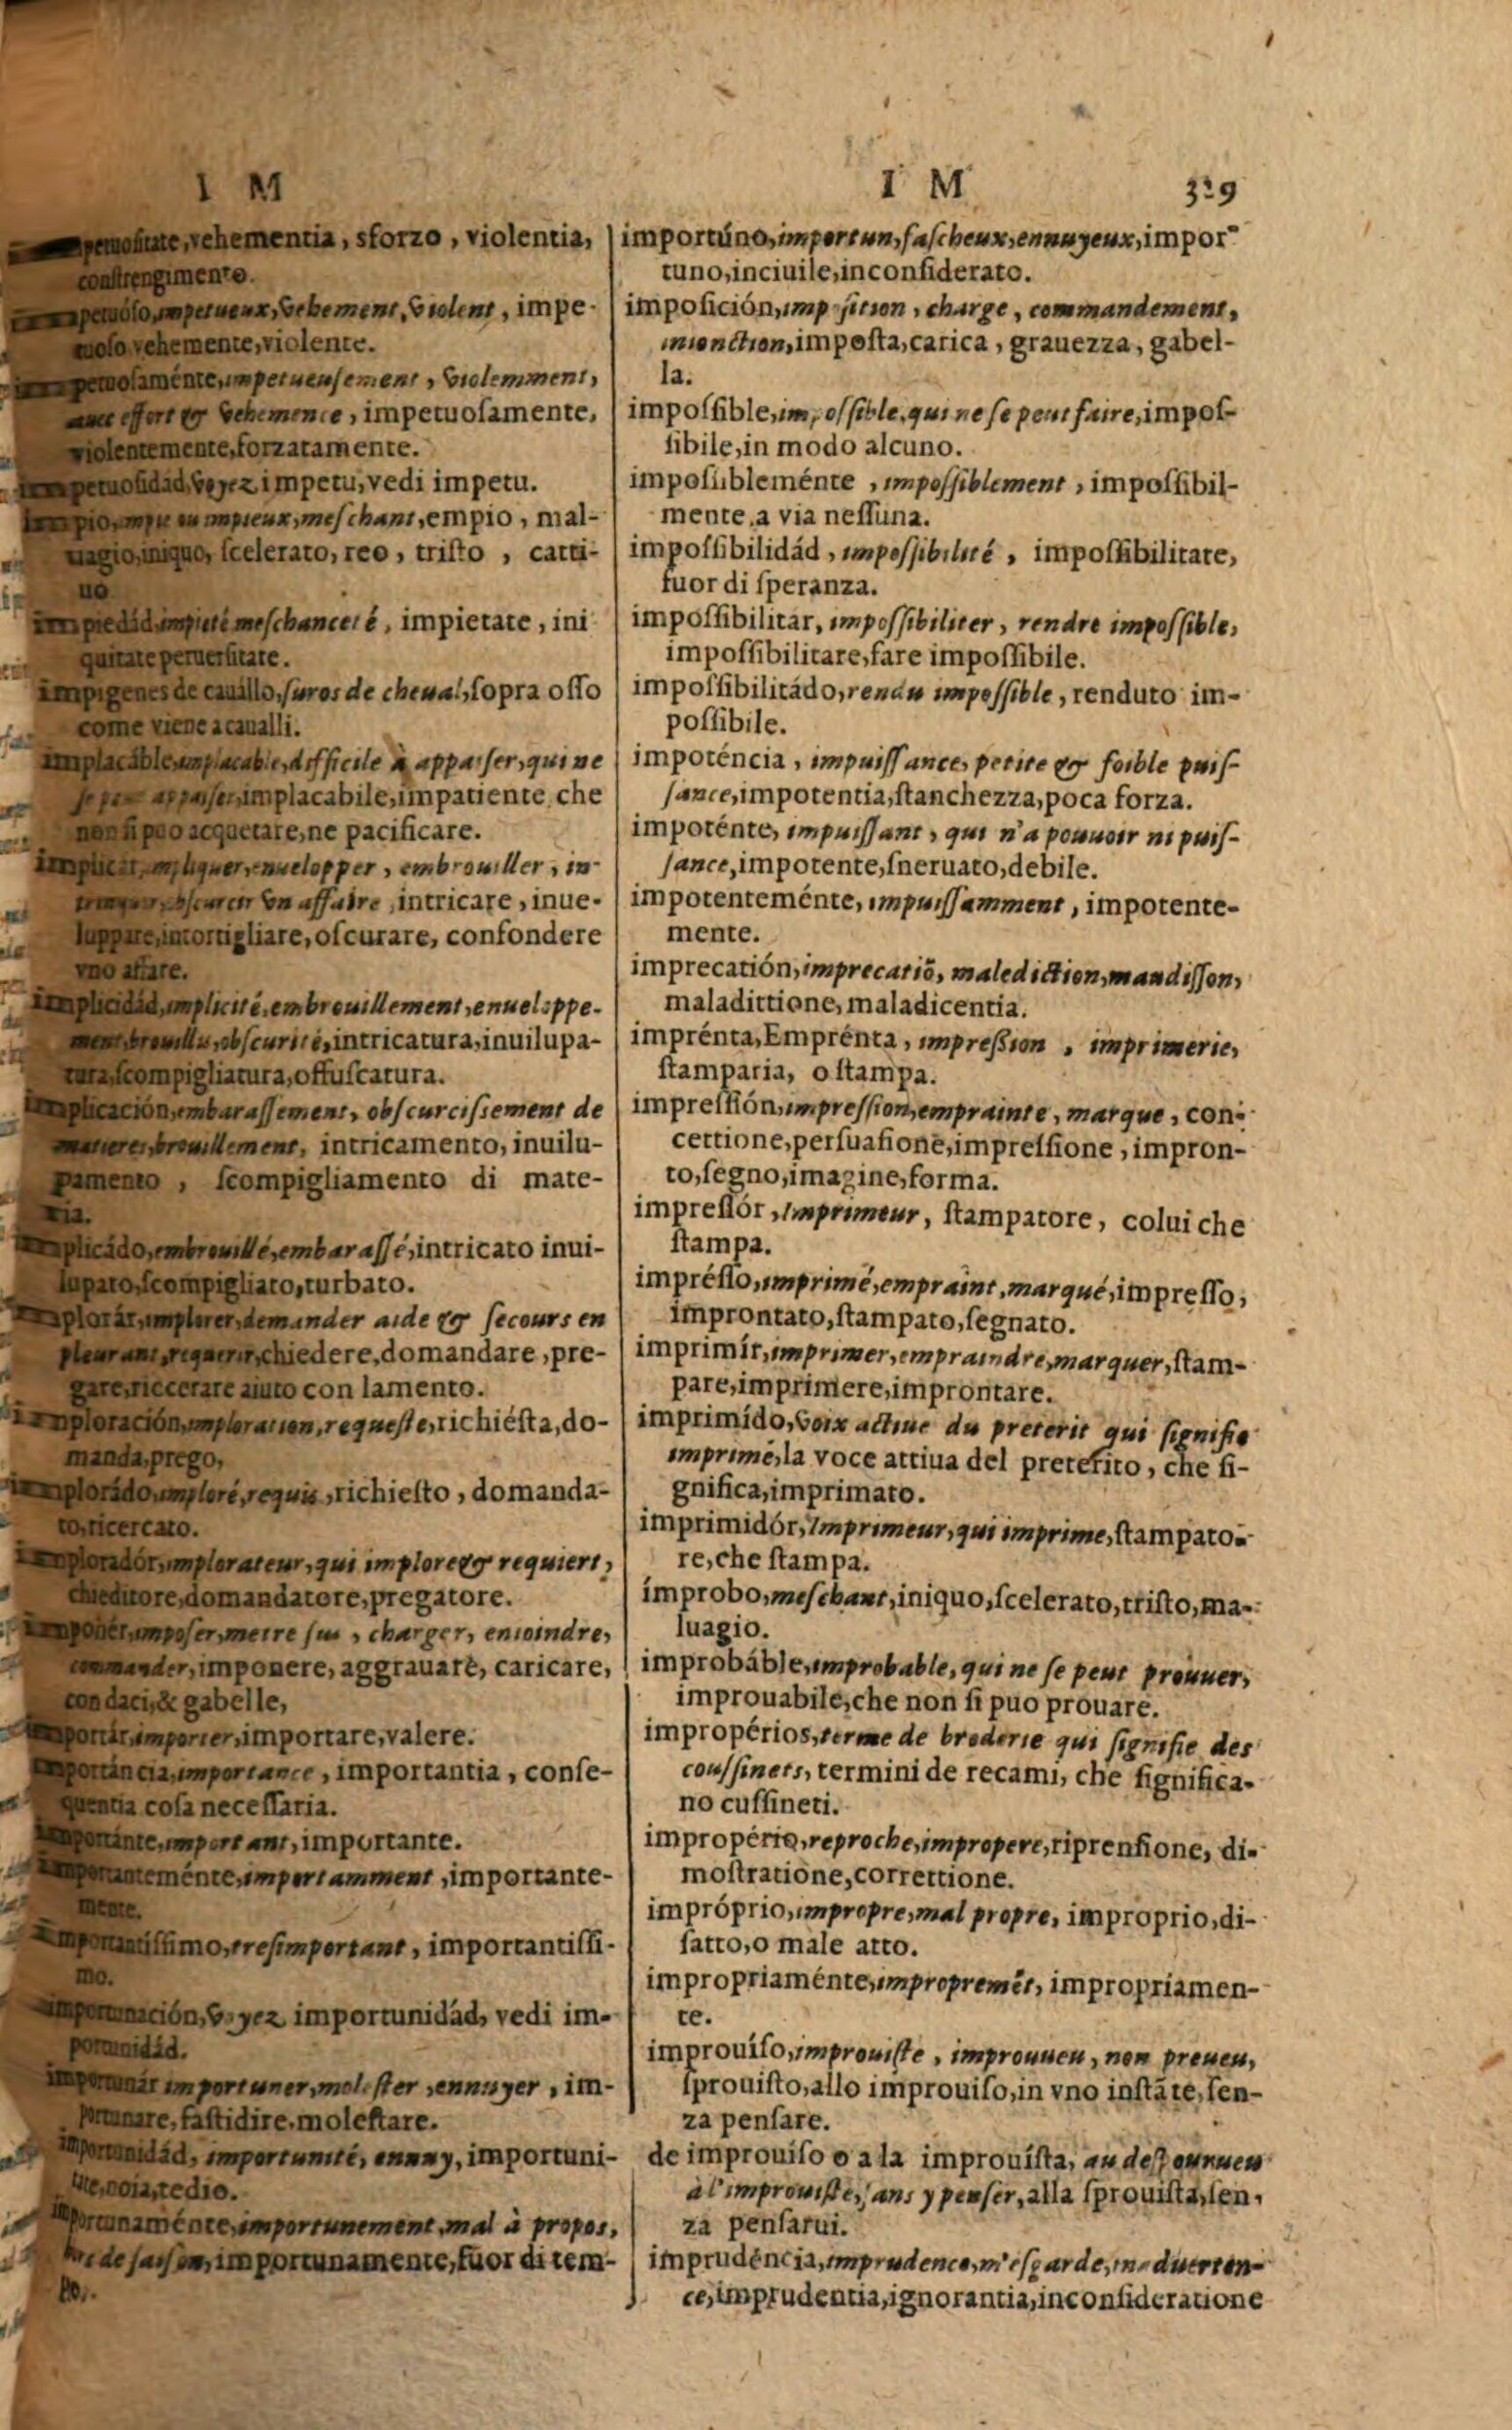 I M
vehementia, sforzo, violentia,
constrengimento.
impetueux, vehement, violent, impe-
tuoso vehemente, violente.
impetueusement, violemment,
auec effort & vehemence, impetuosamente,
violentemente, forzatamente.
impetuosidad, voyez impetu, vedi impetu.
impio, impie ou impieux, meschant, empio, mal-
uagio, iniquo, scelerato, reo, tristo, catti-
uo
impiedád, impieté meschanceté, impietate, ini
quitate peruersitate.
impigenes de cauállo, suros de cheual, sopra osso
come viene a caualli.
implacáble, implacable, difficile à appaiser, qui ne
se peut appaiser, implacabile, impatiente che
non si puo acquetare, ne pacificare.
implicár, impliquer, enuelopper, embrouiller, in-
obscurcir vn affaire, intricare, inue-
luppare, intortigliare, oscurare, confondere
vno affare.
implicidád, implicité, embrouillement, enueloppe-
ment, brouillis, obscurité, intricatura, inuilupa-
tura, scompigliatura, offuscatura.
implicación, embarassement, obscurcissement de
matieres, brouillement, intricamento, inuilu-
pamento, scompigliamento di mate-
ria.
implicádo, embrouillé, embarassé, intricato inui-
lupato, scompigliato, turbato.
implorár, implorer, demander aide & secours en
pleurant, requerir, chiedere, domandare, pre-
gare, riccerare aiuto con lamento.
imploración, imploration, requeste, richiésta, do-
manda, prego,
implorádo, imploré, requis, richiesto, domanda-
to, ricercato.
imploradór, implorateur, qui implore & requiert,
chieditore, domandatore, pregatore.
imponér, imposer, mettre sus, charger, enioindre,
commander, imponere, aggrauare, caricare,
con daci, & gabelle,
importár, importer, importare, valere.
importáncia, importance, importantia, conse-
quentia cosa necessaria.
importánte, important, importante.
importanteménte, importamment, importante-
mente.
importantíssimo, tresimportant, importantissi-
mo.
importunación, voyez importunidád, vedi im-
portunidád.
importunár importuner, molester, ennuyer, im-
portunare, fastidire, molestare.
importunidád, importunité, ennuy, importuni-
tate, noia, tedio.
importunaménte, importunement, mal à propos,
hors de saison, importunamente, fuor di tem-
po.
I M 329
importúno, importun, fascheux, ennuyeux, impor-
tuno, inciuile, inconsiderato.
imposición, imposition, charge, commandement,
inionction, imposta, carica, grauezza, gabel-
la.
impossible, impossible, qui ne se peut faire, impos-
sibile, in modo alcuno.
impossibleménte, impossiblement, impossibil-
mente, a via nessuna.
impossibilidád, impossibilité, impossibilitate,
fuor di speranza.
impossibilitar, impossibiliter, rendre impossible,
impossibilitare, fare impossibile.
impossibilitádo, rendu impossible, renduto im-
possibile.
impoténcia, impuissance, petite & foible puis-
sance, impotentia, stanchezza, poca forza.
impoténte, impuissant, qui n'a pouuoir ni puis-
sance, impotente, sneruato, debile.
impotenteménte, impuissamment, impotente-
mente.
imprecatión, imprecatiõ, malediction, maudisson,
maladittione, maladicentia.
imprénta, Emprénta, impression, imprimerie,
stamparia, o stampa.
impressión, impression, emprainte, marque, con-
cettione, persuasione, impressione, impron-
to, segno, imagine, forma.
impressór, Imprimeur, stampatore, colui che
stampa.
imprésso, imprimé, empraint, marqué, impresso,
improntato, stampato, segnato.
imprimír, imprimer, empraindre, marquer, stam-
pare, imprimere, improntare.
imprimído, voix actiue du preterit qui signifie
imprimé, la voce attiua del preterito, che si-
gnifica, imprimato.
imprimidór, Imprimeur, qui imprime, stampato-
re, che stampa.
ímprobo, meschant, iniquo, scelerato, tristo, ma-
luagio.
improbáble, improbable, qui ne se peut prouuer,
improuabile, che non si puo prouare.
impropérios, terme de broderie qui signifie des
coussinets, termini de recami, che significa-
no cussineti.
impropério, reproche, impropere, riprensione, di-
mostratione, correttione.
impróprio, impropre, mal propre, improprio, di-
satto, o male atto.
impropriaménte, impropremẽt, impropriamen-
te.
improuíso, improuiste, improuueu, non preueu,
sprouisto, allo improuiso, in vno instãte, sen-
za pensare.
de improuiso o a la improuísta, au despourueu
à l'improuiste, sans y penser, alla sprouista, sen,
za pensarui.
imprudéncia, imprudence, mesgarde, inaduerten-
ce, imprudentia, ignorantia, inconsideratione